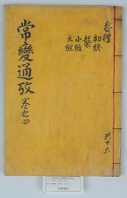 喪禮
初終
襲
小斂
大斂
常變通攷
卷之四
共十六